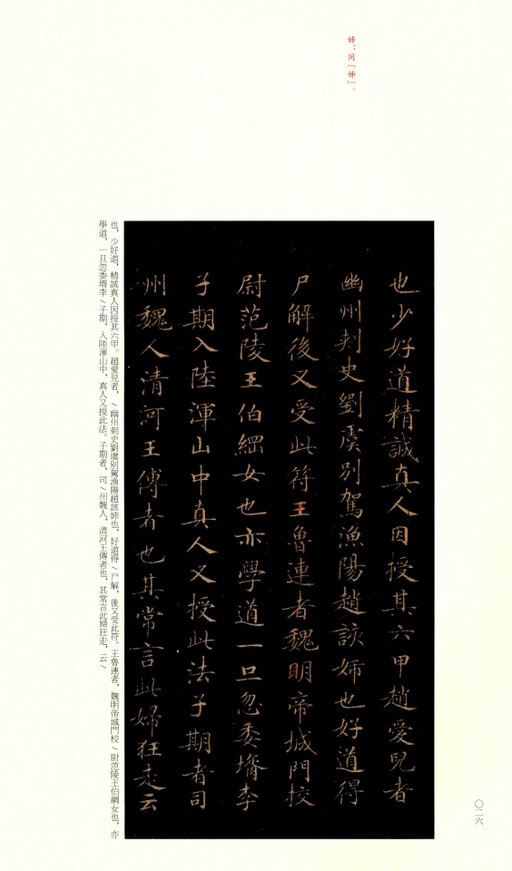 姉：同「姊」。
也少好道精誠真人因授其六甲趙愛兒者
幽州刾史劉虞別駕漁陽趙該姉也好道得
尸解後又受此符王魯連者魏明帝城門挍
尉范陵王伯綱女也亦學道一旦忽委壻李
子期入陸渾山中真人又授此法子期者司
州魏人清河王傅者也其常言此婦狂走云
也，少好道，精誠真人因授其六甲。趙愛兒者，/幽州刺史劉虞別駕漁陽趙該姊也，好道得/尸解，後又受此符。王魯連者，魏明帝城門校/尉范陵王伯綱女也，亦
學道，一旦忽委壻李/子期，入陸渾山中，真人又授此法。子期者，司/州魏人，清河王傅者也，其常言此婦狂走，云/
〇二六